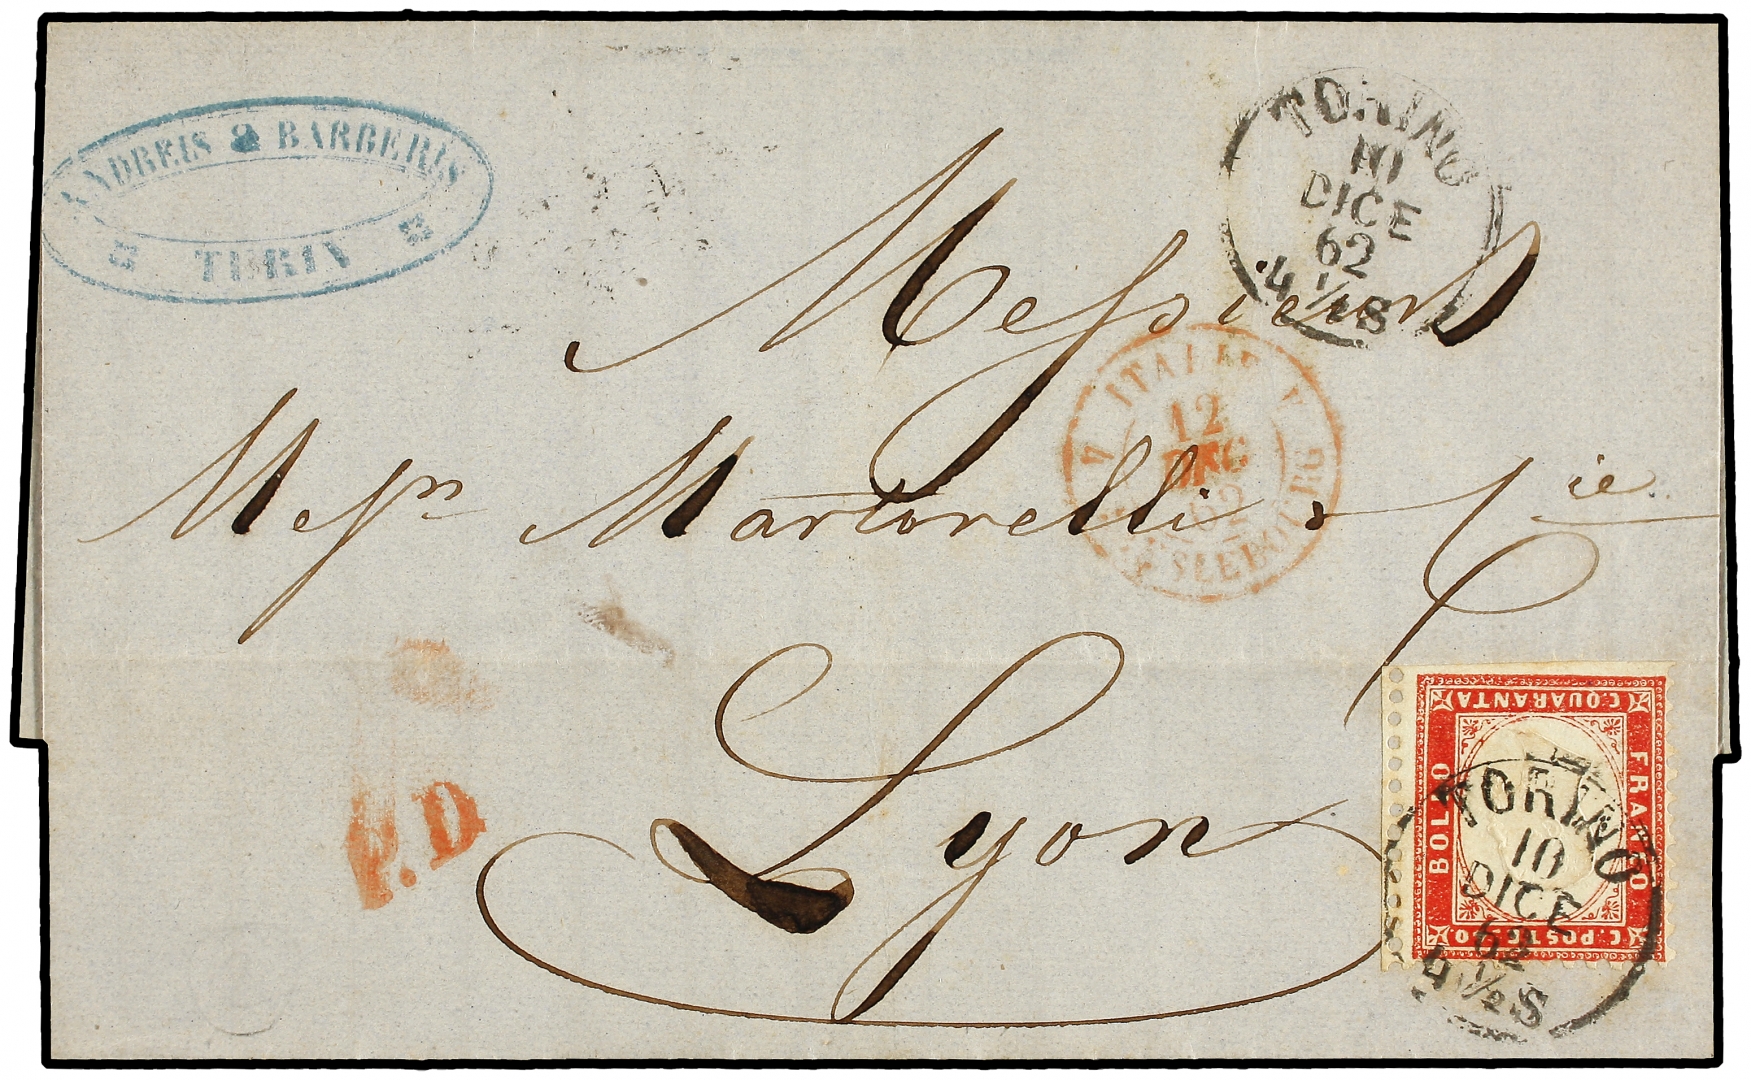 ANDREIS & BARBERIS
TURIN
TORINO
10
DICE
62
4 1/2 S
Messieurs
ITALIE
12
DEC
62
Mess.rs Martorelli & Cie
P.D
Lyon
C. QUARANTA
BOLLO
FRANCO
C. POSTALE
TORINO
10
DICE
62
4 1/2 S